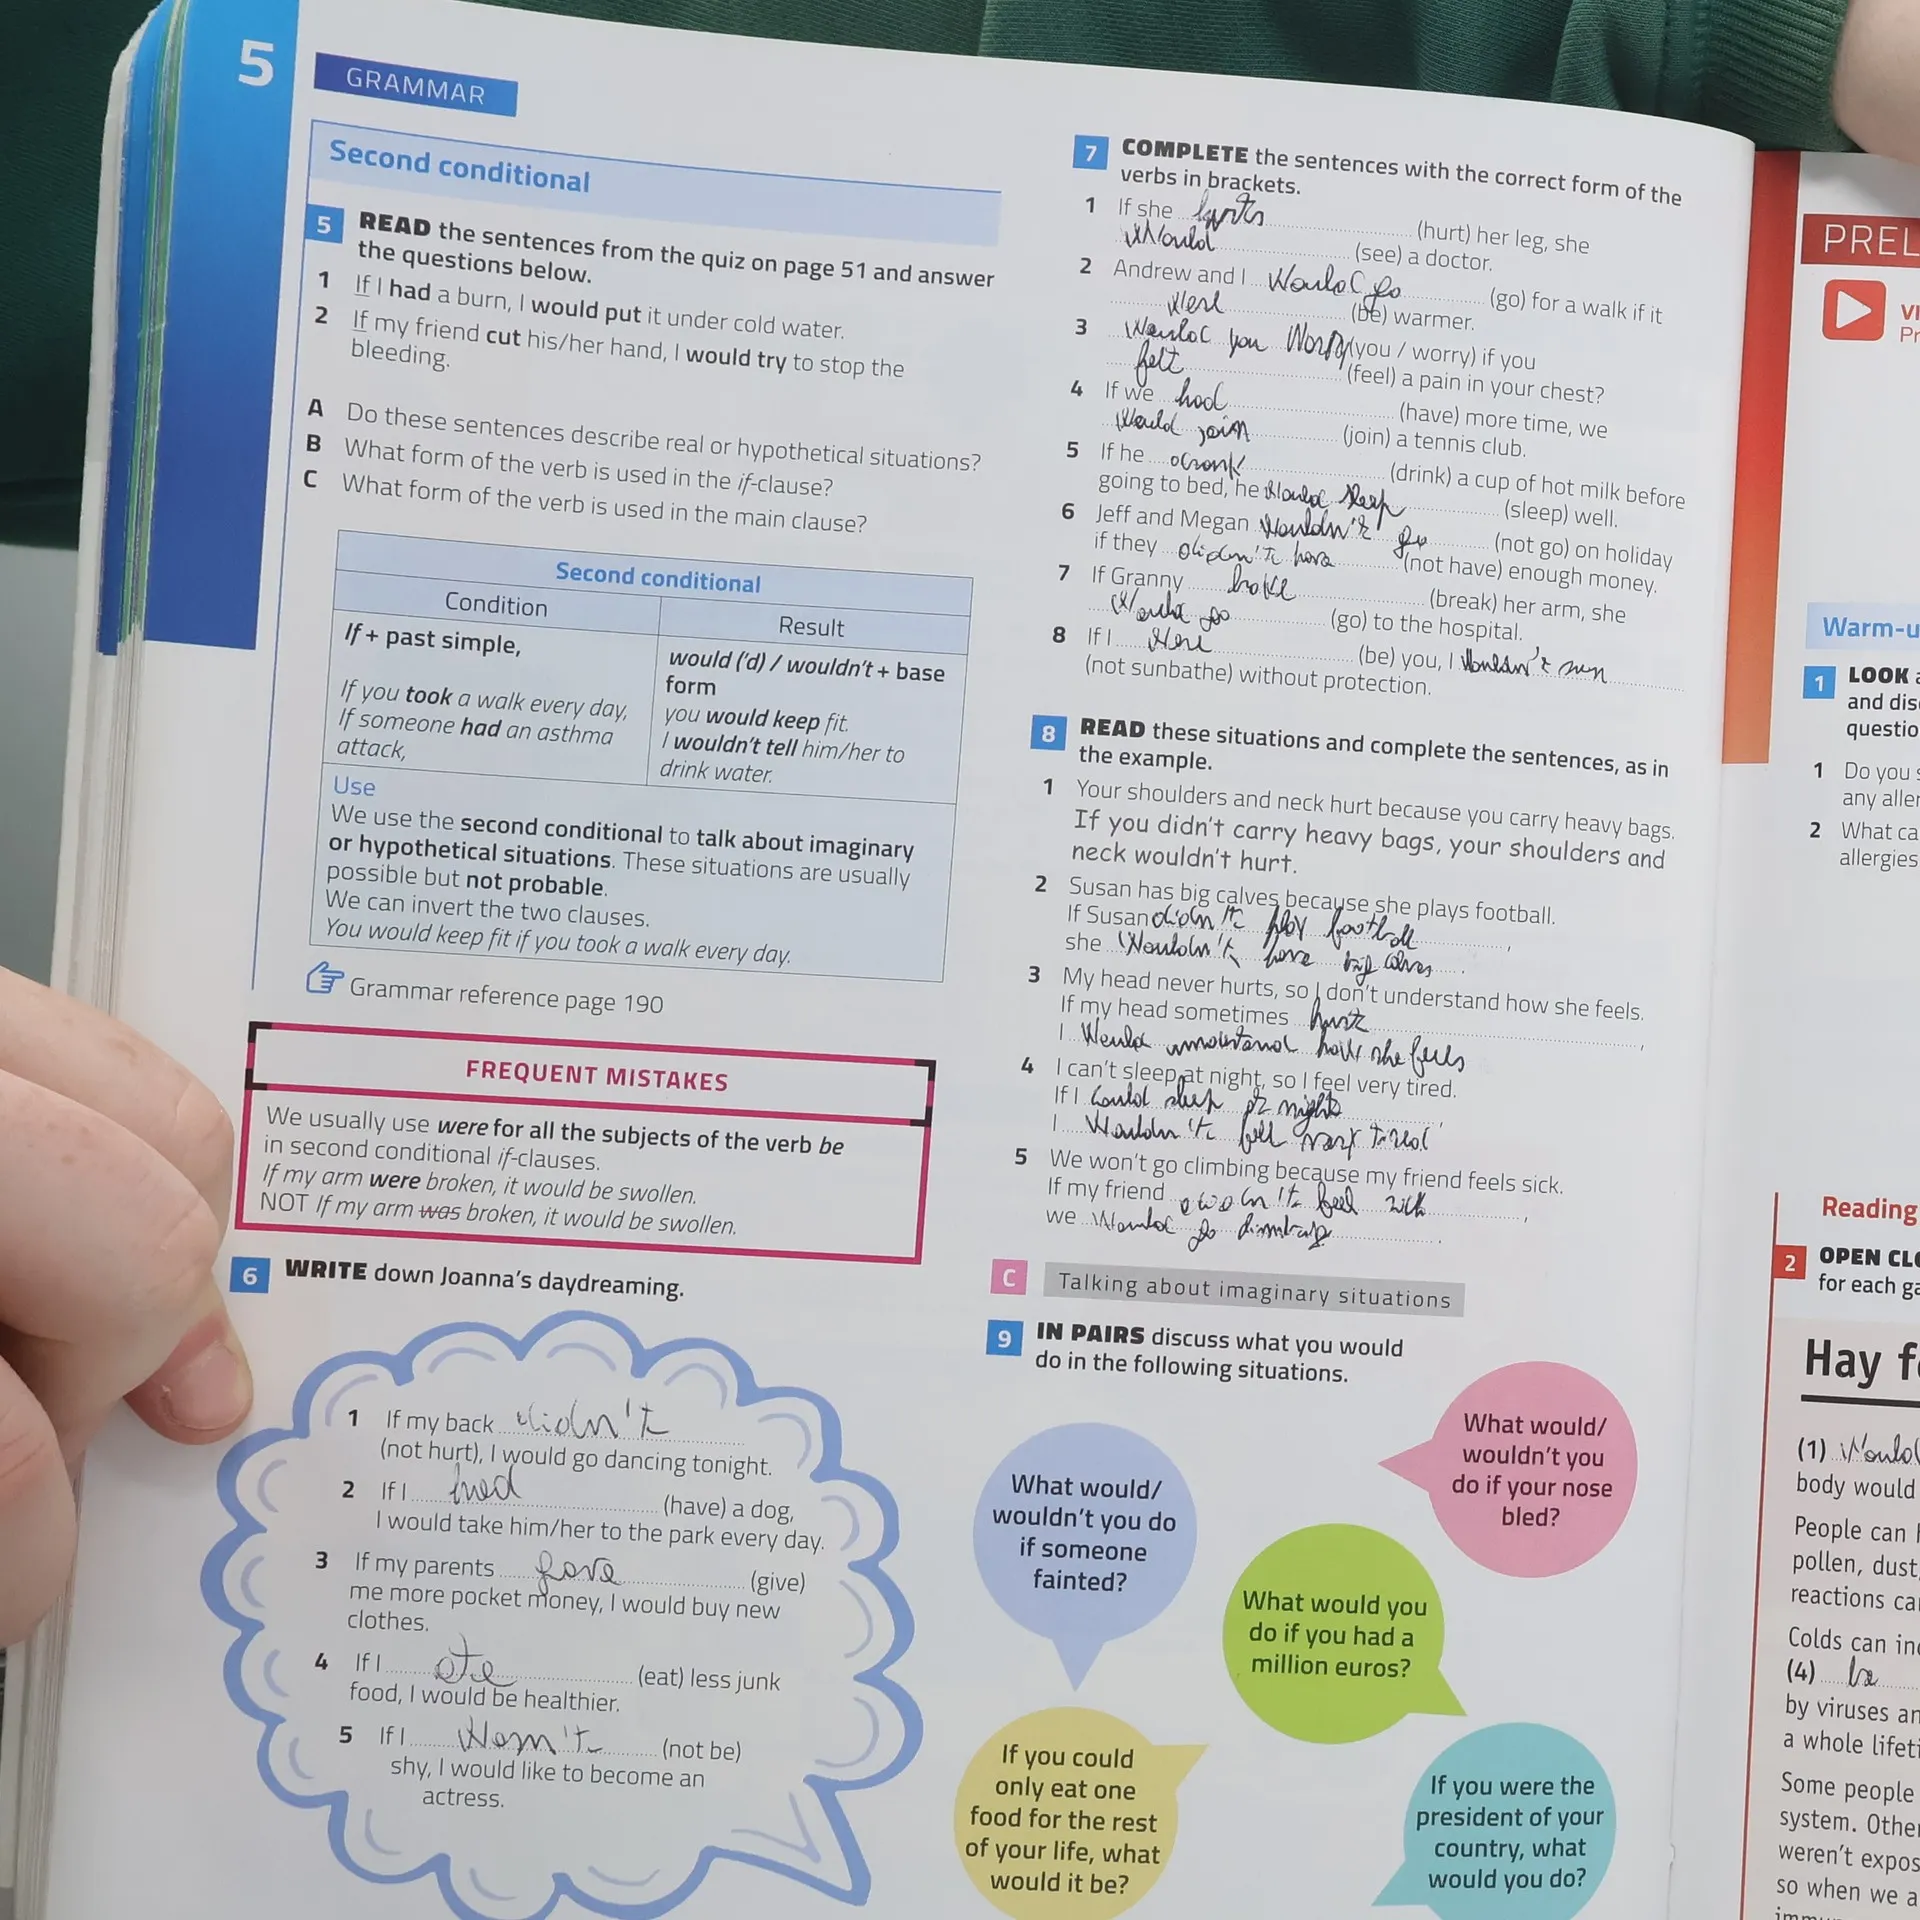 5
GRAMMAR
Second conditional
5 READ the sentences from the quiz on page 51 and answer
the questions below.
1 If I had a burn, I would put it under cold water.
2 If my friend cut his/her hand, I would try to stop the
bleeding.
A Do these sentences describe real or hypothetical situations?
B What form of the verb is used in the if-clause?
C What form of the verb is used in the main clause?
Second conditional
Condition
Result
If + past simple,
If you took a walk every day,
If someone had an asthma
attack,
would ('d) / wouldn't + base
form
you would keep fit.
I wouldn't tell him/her to
drink water.
Use
We use the second conditional to talk about imaginary
or hypothetical situations. These situations are usually
possible but not probable.
We can invert the two clauses.
You would keep fit if you took a walk every day.
Grammar reference page 190
FREQUENT MISTAKES
We usually use were for all the subjects of the verb be
in second conditional if-clauses.
If my arm were broken, it would be swollen.
NOT If my arm was broken, it would be swollen.
6 WRITE down Joanna's daydreaming.
1 If my back didn't
(not hurt), I would go dancing tonight.
2 If I had (have) a dog,
I would take him/her to the park every day.
3 If my parents gave (give)
me more pocket money, I would buy new
clothes.
4 If I ate (eat) less junk
food, I would be healthier.
5 If I (not be)
shy, I would like to become an
actress.
7 COMPLETE the sentences with the correct form of the
verbs in brackets.
1 If she (hurt) her leg, she
Would (see) a doctor.
2 Andrew and I Would go (go) for a walk if it
Were (be) warmer.
3 Would you Worry (you / worry) if you
felt (feel) a pain in your chest?
4 If we had (have) more time, we
Would join (join) a tennis club.
5 If he drank (drink) a cup of hot milk before
going to bed, he Would sleep (sleep) well.
6 Jeff and Megan Wouldn't go (not go) on holiday
if they didn't have (not have) enough money.
7 If Granny broke (break) her arm, she
Would go (go) to the hospital.
8 If I Were (be) you, I Wouldn't sun
(not sunbathe) without protection.
8 READ these situations and complete the sentences, as in
the example.
1 Your shoulders and neck hurt because you carry heavy bags.
If you didn't carry heavy bags, your shoulders and
neck wouldn't hurt.
2 Susan has big calves because she plays football.
If Susan didn't play football ,
she Wouldn't have big calves .
3 My head never hurts, so I don't understand how she feels.
If my head sometimes hurt ,
I Would understand how she feels
4 I can't sleep at night, so I feel very tired.
If I Could sleep at night ,
I Wouldn't feel very tired
5 We won't go climbing because my friend feels sick.
If my friend feel sick ,
we Would go climbing .
C Talking about imaginary situations
9 IN PAIRS discuss what you would
do in the following situations.
What would/
wouldn't you do
if someone
fainted?
What would/
wouldn't you
do if your nose
bled?
What would you
do if you had a
million euros?
If you could
only eat one
food for the rest
of your life, what
would it be?
If you were the
president of your
country, what
would you do?
PREL
VI
Pr
Warm-u
1 LOOK a
and dis
questio
1 Do you s
any aller
2 What ca
allergies
Reading
2 OPEN CLO
for each ga
Hay f
(1) Would
body would
People can
pollen, dust,
reactions ca
Colds can in
(4) be
by viruses an
a whole lifeti
Some people
system. Other
weren't expos
so when we a